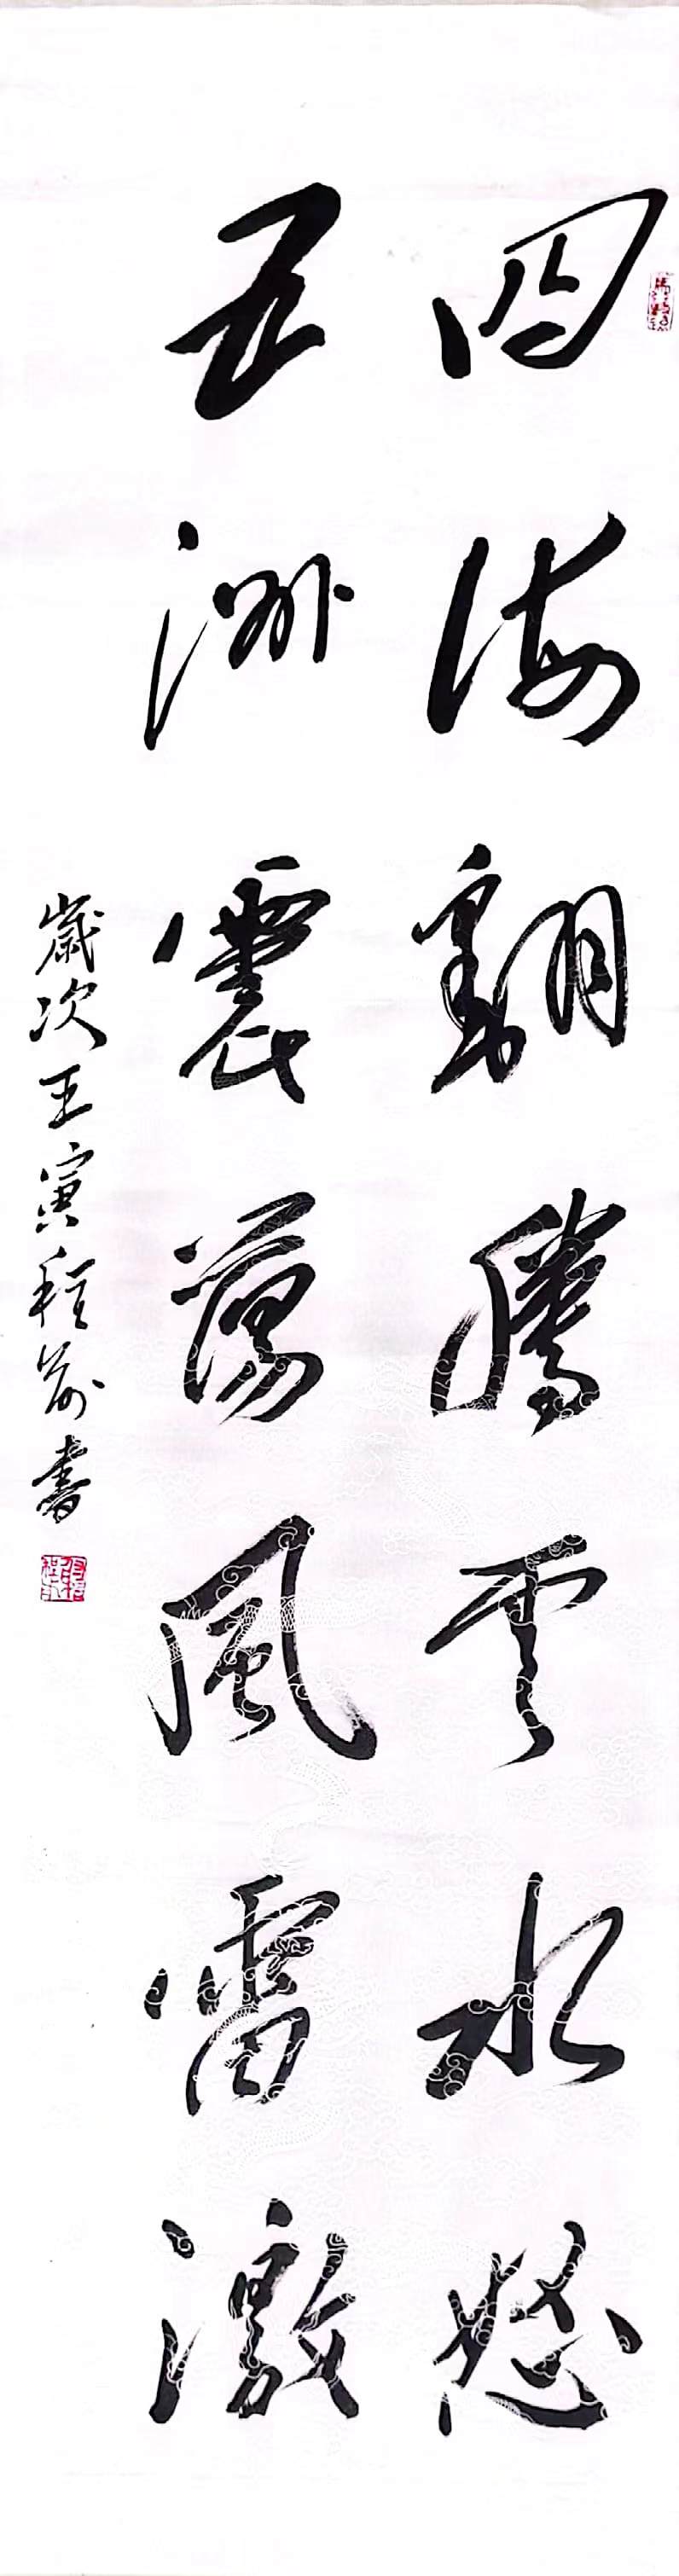 四海翻騰云水怒
五洲震蕩風雷激
歲次壬寅程前書